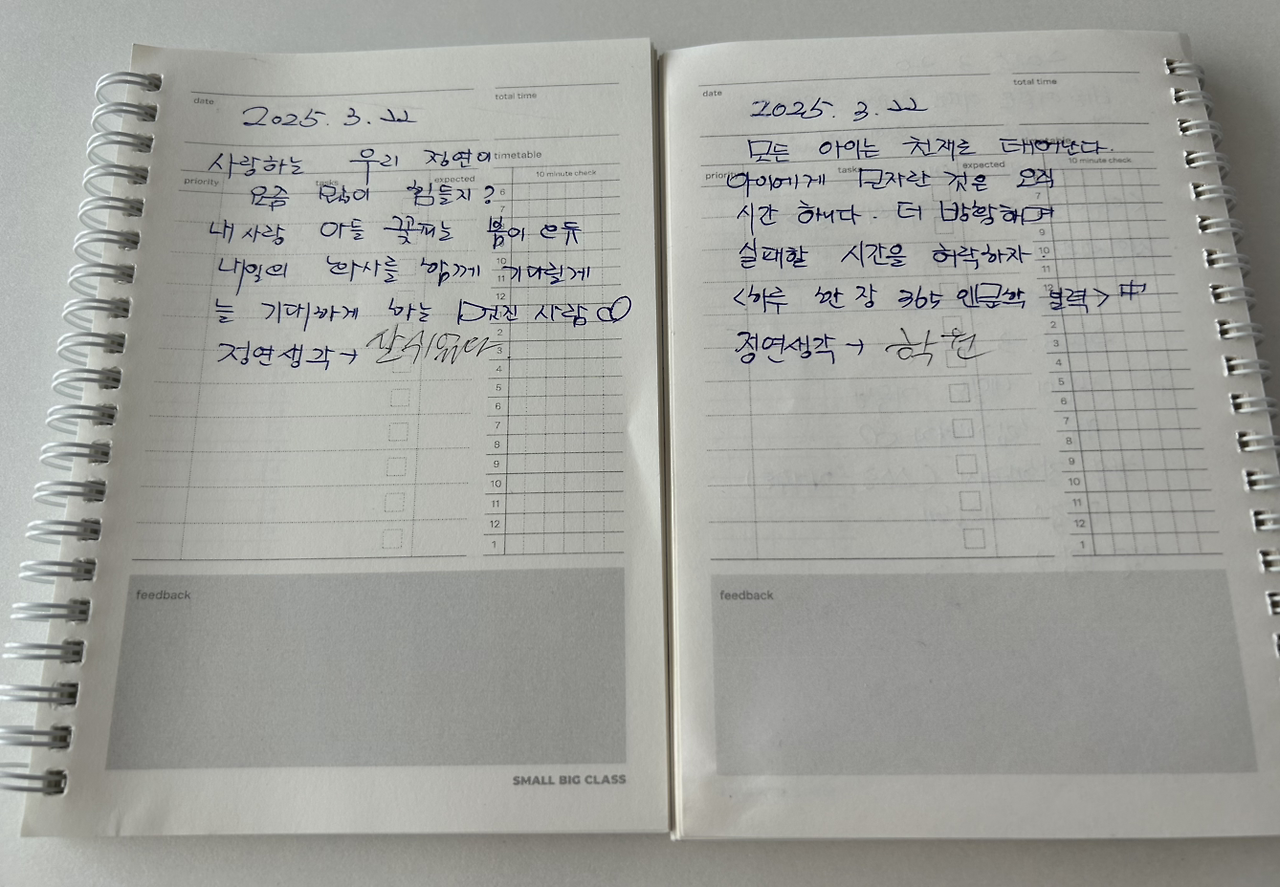 date
total time
2025. 3. 22
사랑하는 우리 정연이
timetable
priority
tasks
expected
10 minute check
요즘 많이 힘들지?
내사랑 아들 꽃피는 봄이 오듯
내일의 화사를 함께 기다릴게
늘 기대하게 하는 멋진 사람
정연생각→ 잘쉬었다.
6
7
10
11
12
2
3
4
5
6
7
8
9
10
11
12
1
feedback
SMALL BIG CLASS
date
total time
2025. 3. 22
모든 아이는 천재로 태어난다.
timetable
priority
tasks
expected
10 minute check
아이에게 모자란 것은 오직
시간 하나다. 더 방황하며
실패할 시간을 허락하자
<하루 한 장 365 인문학 달력> 中
정연생각→ 학원
7
9
10
11
12
2
3
4
5
6
7
8
9
10
11
12
1
feedback